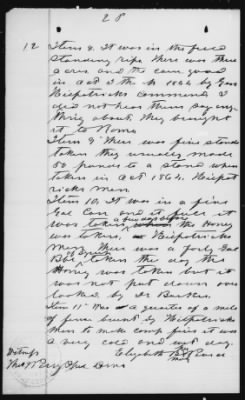 28
12 Item 8. It was in the field
standing ripe there was three
acres and the corn good
in Oct 1864 by Gen
Kilpatricks command I
did not hear them say any
thing about, they brought
it to Rome
Item 9 There was five stands
taken they usually made
50 pounds a stand when
taken in Oct 1864. Kilpat
ricks men.
Item 10. It was in a five
Gal Can and it full it
was taken, the Honey
was taken, Kilpatricks
Men, there was a forty Gal
Bbl taken the day the
Honey was taken but it
was not put down over
looked by Dr
Item 11 Was a quarter of a mile
of fence burnt by Kilpatricks
Men to make camp fires it was
a very cold and wet day.
Elizabeth
Witness